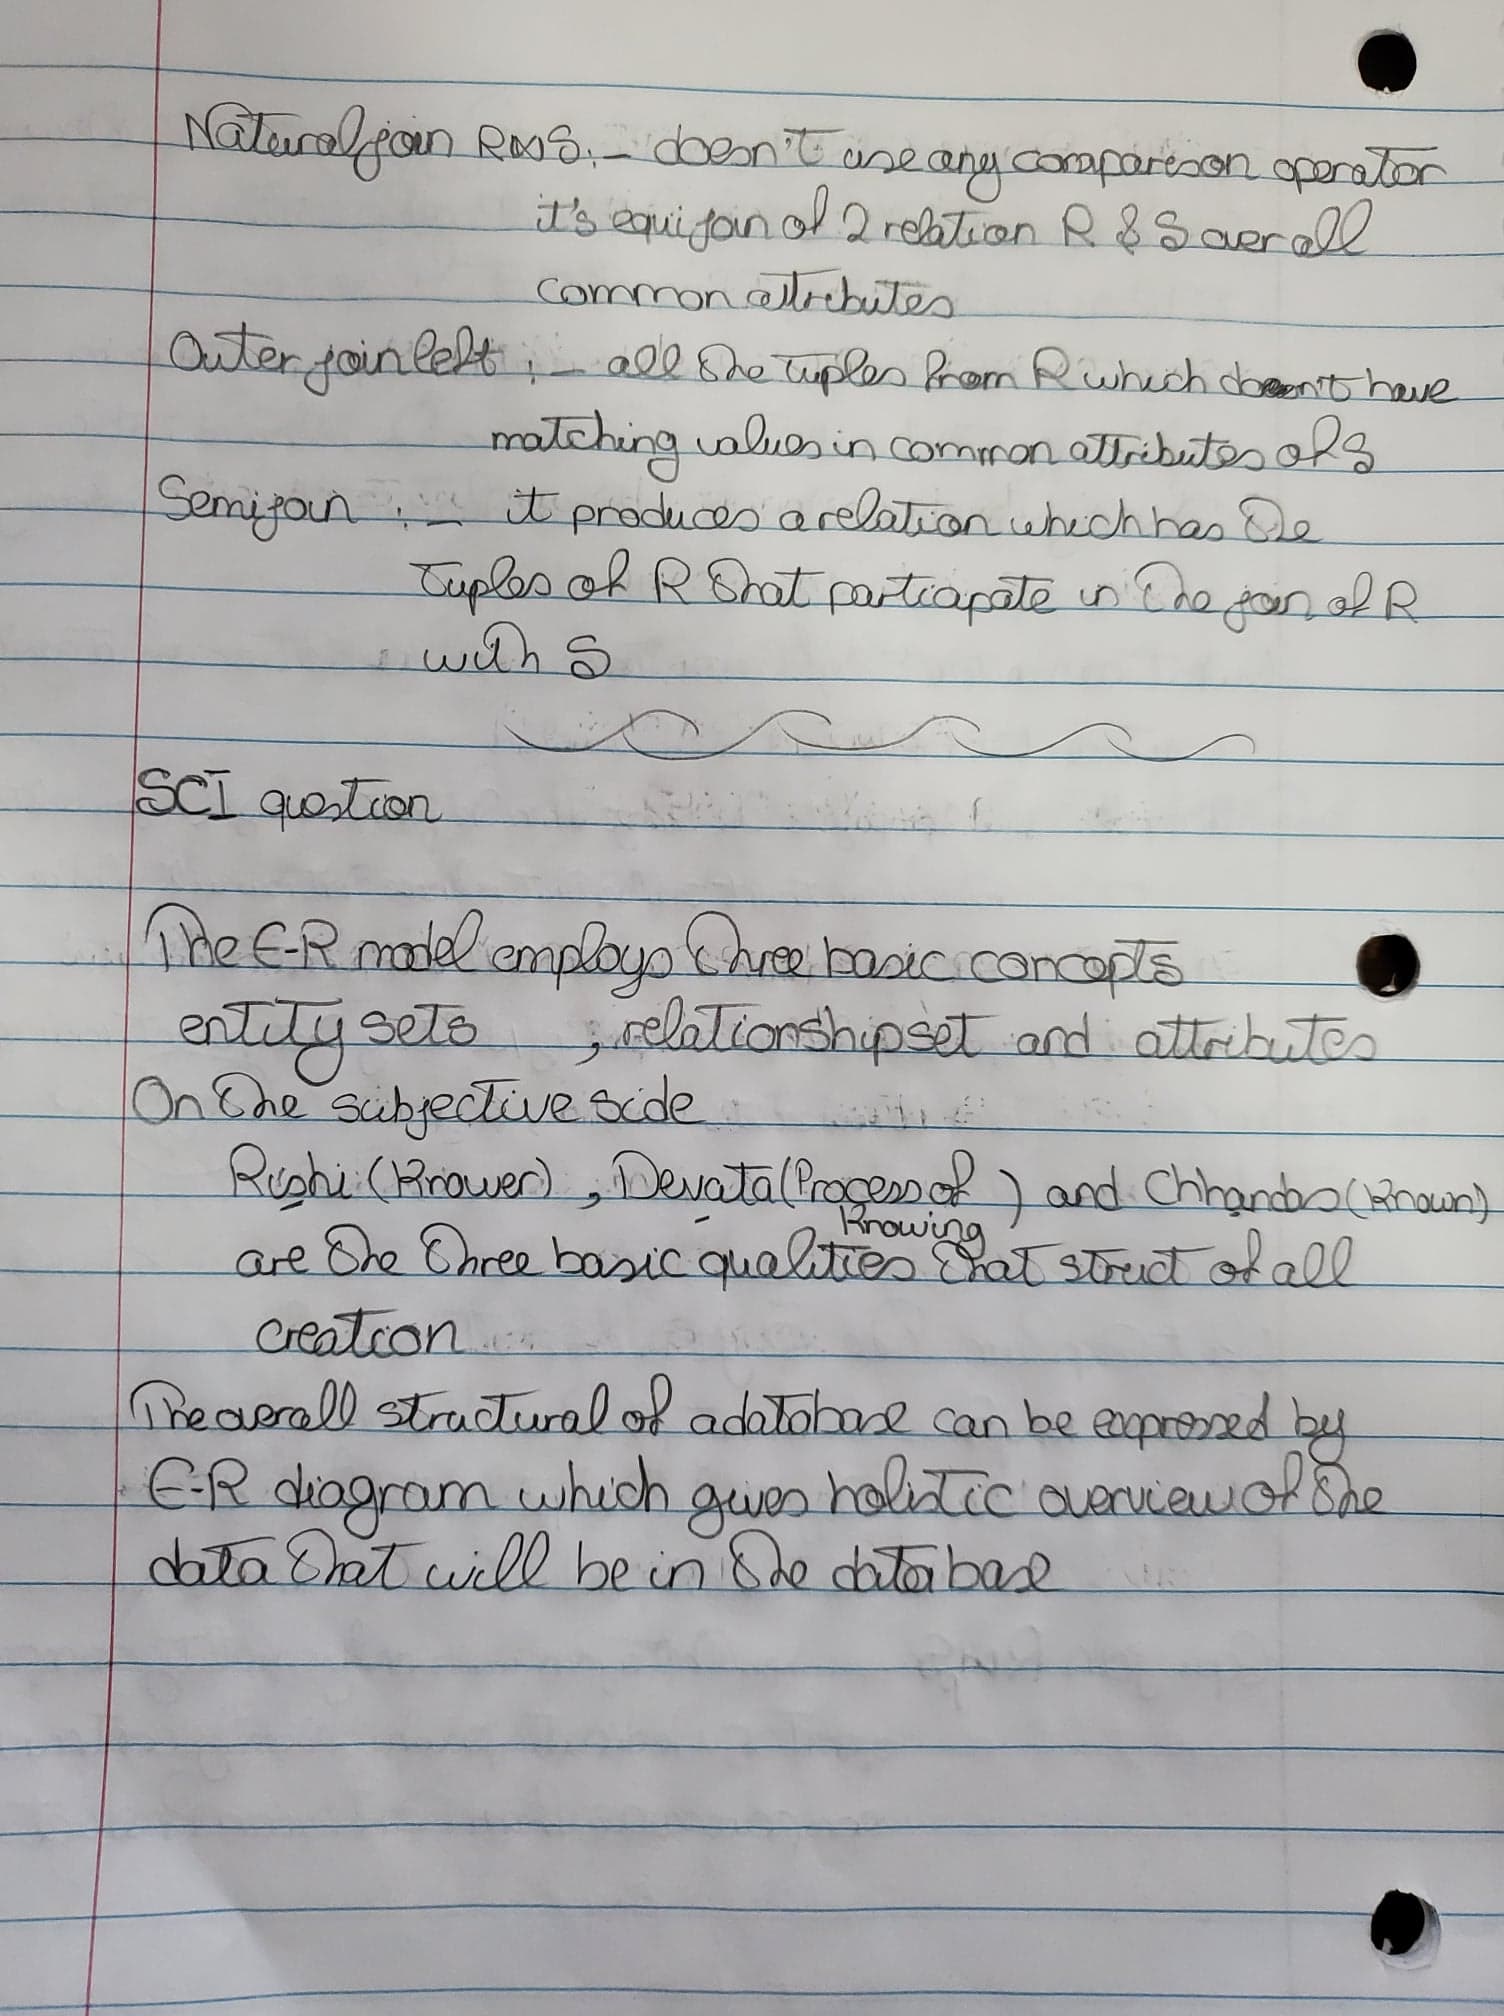 Natural join R⋈S :- doesn't use any comparison operator
it's equijoin of 2 relation R & S over all
common attributes
Outer join left :- all the tuples from R which doesn't have
matching values in common attributes of S
Semijoin :- it produces a relation which has the
tuples of R that participate in the join of R
with S
SCI question
The E-R model employs three basic concepts
entity sets , relationship set and attributes
On the subjective side
Rishi (Knower), Devata (Process of Knowing) and Chhandas (Known)
are the three basic qualities that struct of all
creation
The overall structural of a database can be expressed by
E-R diagram which gives holistic overview of the
data that will be in the database